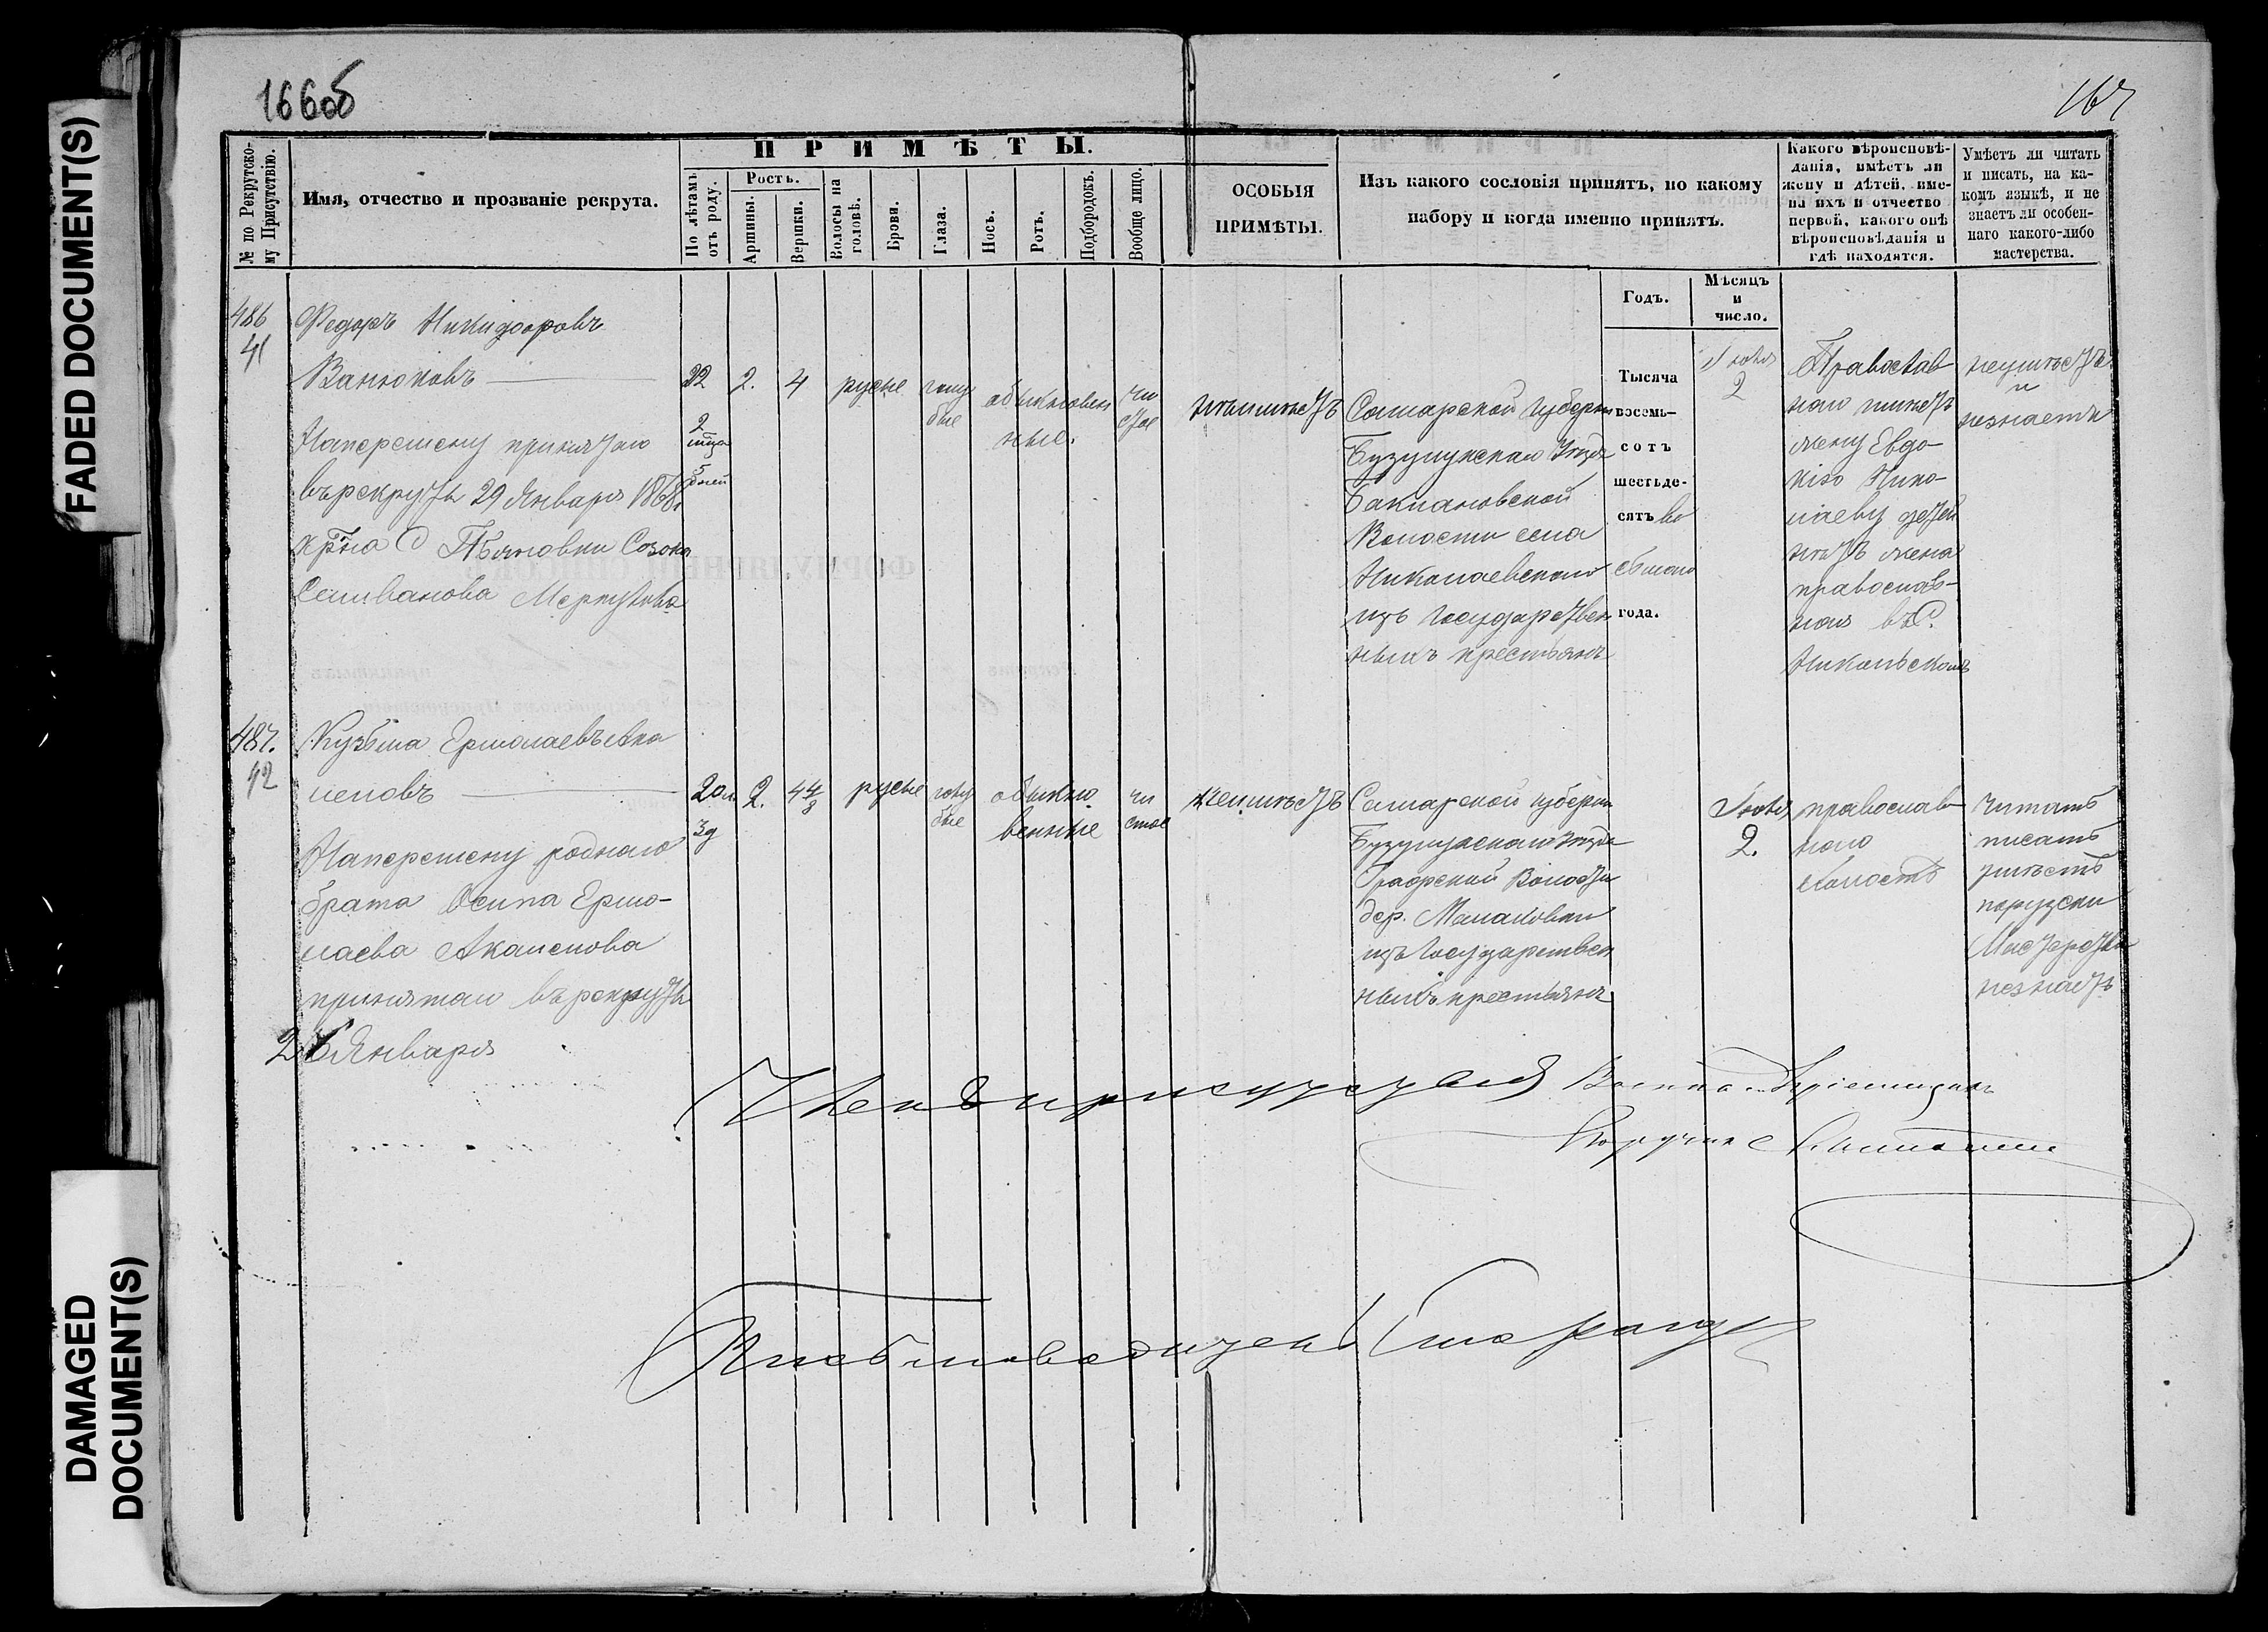 FADED DOCUMENT(S)
DAMAGED
DOCUMENT(S)
166об
167
№ по Рекрутско-
му Присутствію.
Имя, отчество и прозваніе рекрута.
ПРИМѢТЫ.
По лѣтамъ
отъ роду.
Ростъ.
Аршины.
Вершки.
Волосы на
головѣ.
Брови.
Глаза.
Носъ.
Ротъ.
Подбородокъ.
Вообще лицо.
ОСОБЫЯ
ПРИМѢТЫ.
Изъ какого сословія принятъ, по какому
набору и когда именно принятъ.
Какого вѣроисповѣ-
данія, имѣетъ ли
жену и дѣтей, име-
на ихъ и отчество
первой, какого онѣ
вѣроисповѣданія и
гдѣ находятся.
Умѣетъ ли читать
и писать, на ка-
комъ языкѣ, и не
знаетъ ли особен-
наго какого-либо
мастерства.
Годъ.
Мѣсяцъ
и
число.
486
41
Федоръ Никифоровъ
Ванюковъ
Наперемену принятаго
въ рекруты 29 Января 1868
крна С Пьяновки Созона
Селиванова Меркулова
22
2
мца
5
дней
2.
4
русые
голу
бые
обыкновен
ные.
чи
стое
неимѣетъ
Самарской губерни
Бузулукскаго Уезда
Баклановской
Волости села
Николаевскаго
изъ Государствен
ныхъ крестьянъ
Тысяча
восемь-
сотъ
шестьде-
сятъ во
сьмаго
года.
Іюня
2
Православ
наго имѣетъ
жену Евдо-
кію Нико-
лаеву детей
нетъ жена
православ-
ная въ С.
Никольскомъ
неумѣетъ
и
незнаетъ
487.
42
Кузьма Ермолаевъ Ака
леловъ
Наперемену роднаго
брата Осипа Ермо-
лаева
принятаго въ рекруты
26 Января
20 л.
3 д
2.
4 4/8
русые
голу
бые
обыкно
венные
чи
стое
неимѣетъ
Самарской губерни
Бузулукскаго Уезда
Волости
дер.
изъ Государствен
ныхъ крестьянъ
Іюня
2.
православ
наго
холостъ
читать
писать
умѣетъ
порузски
Мастерства
незнаетъ
Членъ присутствія
Военно Пріемщикъ
Поручикъ
Письмоводитель